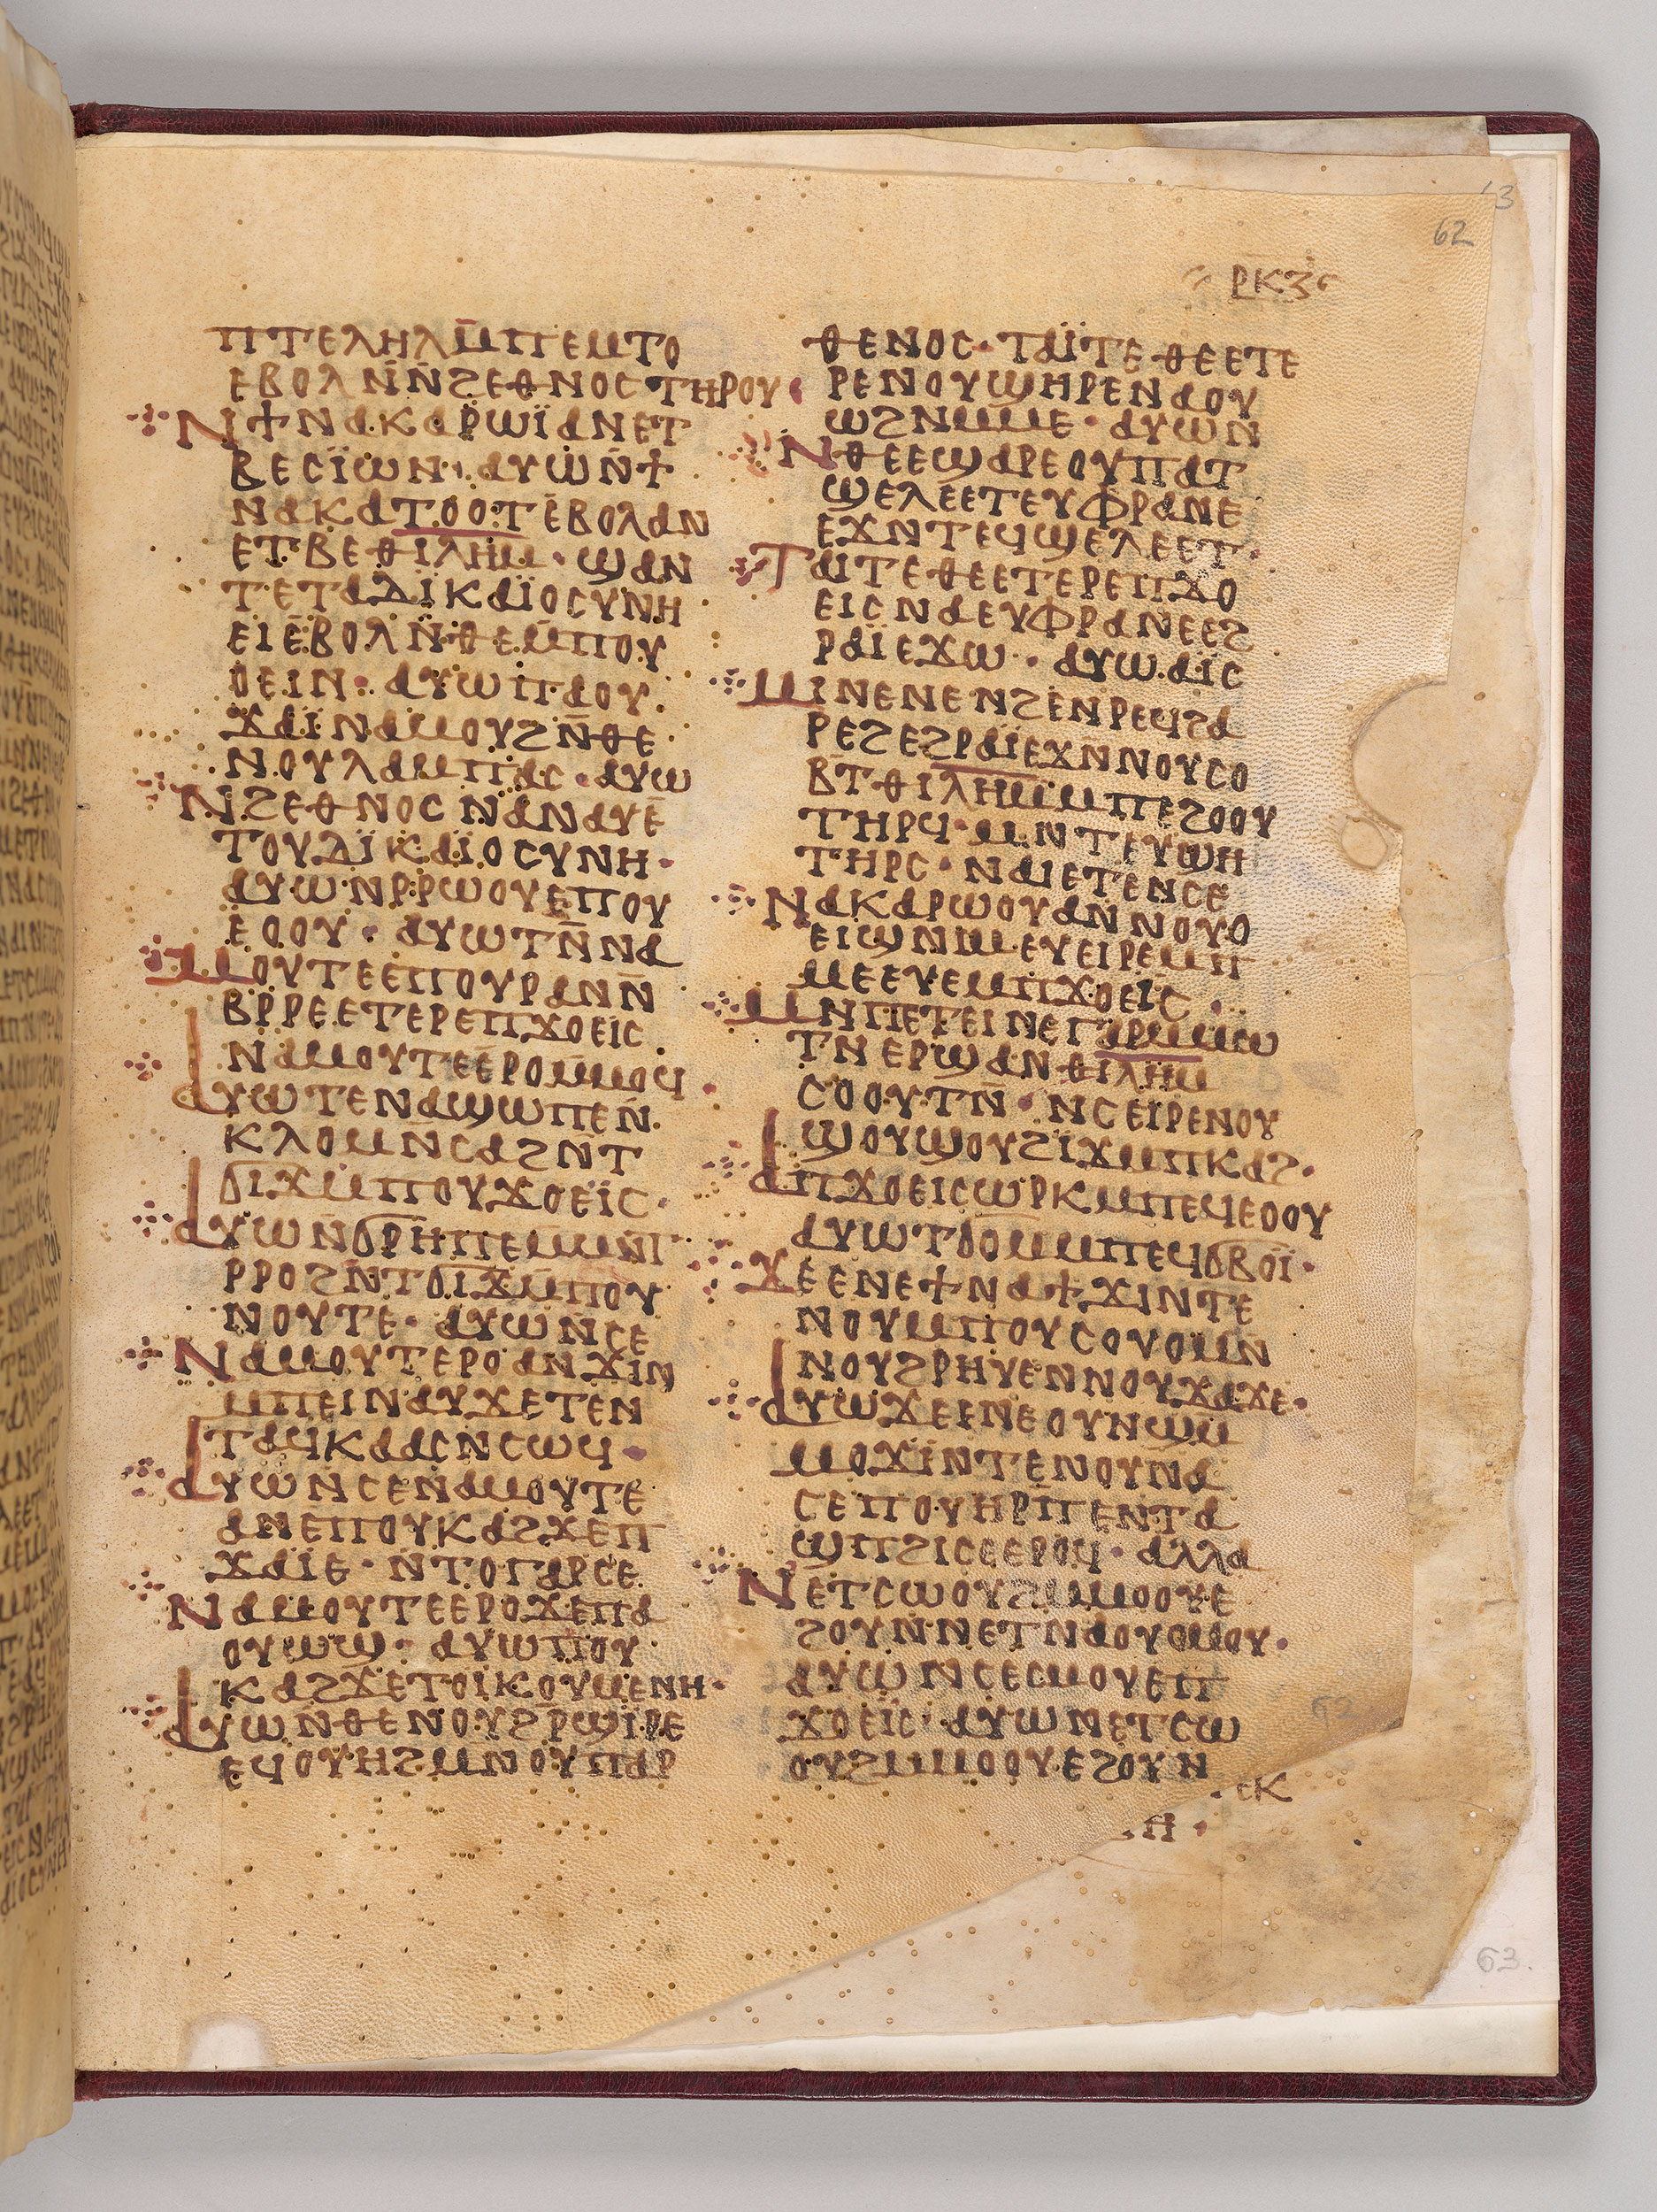 62
ⲣⲕⲍ
ⲡⲧⲉⲗⲏⲗⲙ̄ⲡⲉⲙⲧⲟ
ⲉⲃⲟⲗⲛ̄ⲛ̄ϩⲉⲑⲛⲟⲥⲧⲏⲣⲟⲩ·
ⲛϯⲛⲁⲕⲁⲣⲱⲓ̈ⲁⲛⲉⲧ
ⲃⲉⲥⲓ̈ⲱⲛ· ⲁⲩⲱⲛ̄ϯ
ⲛⲁⲕⲁⲧⲟⲟⲧⲉⲃⲟⲗⲁⲛ
ⲉⲧⲃⲉⲑⲓⲗⲏⲙ· ϣⲁⲛ
ⲧⲉⲧⲁⲇⲓ̈ⲕⲁⲓ̈ⲟⲥⲩⲛⲏ
ⲉⲓⲉⲃⲟⲗⲛ̄ⲑⲉⲙⲡⲟⲩ
ⲟⲉⲓⲛ· ⲁⲩⲱⲡⲁⲟⲩ
ϫⲁⲓ̈ⲛⲁⲙⲟⲩϩⲛ̄ⲑⲉ
ⲛⲟⲩⲗⲁⲙⲡⲁⲥ· ⲁⲩⲱ
ⲛϩⲉⲑⲛⲟⲥⲛⲁⲛⲁⲩⲉ
ⲧⲟⲩⲇⲓ̈ⲕⲁⲓ̈ⲟⲥⲩⲛⲏ·
ⲁⲩⲱⲛⲣⲣⲱⲟⲩⲉⲡⲟⲩ
ⲉⲟⲟⲩ· ⲁⲩⲱⲧⲛ̄ⲛⲁ
ⲙⲟⲩⲧⲉⲉⲡⲟⲩⲣⲁⲛⲛ̄
ⲃⲣⲣⲉⲉⲧⲉⲣⲉⲡϫⲟⲉⲓⲥ
ⲛⲁⲙⲟⲩⲧⲉⲉⲣⲟⲙⲙⲟϥ·
ⲁⲩⲱⲧⲉⲛⲁϣⲱⲡⲉⲛ̄
ⲕⲗⲟⲙⲛ̄ⲥⲁϩⲛ̄ⲧ
ϭⲓϫⲙ̄ⲡⲟⲩϫⲟⲉⲓ̈ⲥ·
ⲁⲩⲱⲛ̄ϭⲣⲏⲡⲉⲙⲙⲛ̄ⲧ
ⲣⲣⲟϩⲛ̄ⲧϭⲓϫⲙ̄ⲡⲟⲩ
ⲛⲟⲩⲧⲉ· ⲁⲩⲱⲛ̄ⲥⲉ
ⲛⲁⲙⲟⲩⲧⲉⲣⲟⲁⲛϫⲓⲛ
ⲙⲡⲉⲓⲛⲁⲩϫⲉⲧⲉⲛ
ⲧⲁϥⲕⲁⲁⲥⲛⲥⲱϥ·
ⲁⲩⲱⲛ̄ⲥⲉⲛⲁⲙⲟⲩⲧⲉ
ⲁⲛⲉⲡⲟⲩⲕⲁϩϫⲉⲡ
ϫⲁⲓ̈ⲉ· ⲛ̄ⲧⲟⲅⲁⲣⲥⲉ
ⲛⲁⲙⲟⲩⲧⲉⲉⲣⲟϫⲉⲡⲁ
ⲟⲩⲱϣ· ⲁⲩⲱⲡⲟⲩ
ⲕⲁϩϫⲉⲧⲟⲓⲕⲟⲩⲙⲉⲛⲏ·
ⲁⲩⲱⲛ̄ⲑⲉⲛⲟⲩϩⲣϣⲓⲣⲉ
ⲉϥⲟⲩⲏϩⲙⲛⲟⲩⲡⲁⲣ
ⲑⲉⲛⲟⲥ· ⲧⲁⲓ̈ⲧⲉⲑⲉⲉⲧⲉ
ⲣⲉⲛⲟⲩϣⲏⲣⲉⲛⲁⲟⲩ
ⲱϩⲛⲙⲙⲉ· ⲁⲩⲱⲛ
ⲛⲑⲉⲉϣⲁⲣⲉⲟⲩⲡⲁⲧ
ϣⲉⲗⲉⲉⲧⲉⲩⲫⲣⲁⲛⲉ
ⲉϫⲛⲧⲉϥϣⲉⲗⲉⲉⲧ·
ⲧⲁⲓⲧⲉⲑⲉⲉⲧⲉⲣⲉⲡϫⲟ
ⲉⲓⲥⲛⲁⲉⲩⲫⲣⲁⲛⲉⲉϩ
ⲣⲁⲓ̈ⲉϫⲱ· ⲁⲩⲱⲁⲓ̈ⲥ
ⲙⲓⲛⲉⲛⲉⲛϩⲉⲛⲣⲉϥϩⲁ
ⲣⲉϩⲉϩⲣⲁⲓ̈ⲉϫⲛⲛⲟⲩⲥⲟ
ⲃⲧⲑⲓⲗⲏⲙⲙⲡⲉϩⲟⲟⲩ
ⲧⲏⲣϥ· ⲙⲛⲧⲉⲩϣⲏ
ⲧⲏⲣⲥ· ⲛⲁⲓⲉⲧⲉⲛⲥⲉ
ⲛⲁⲕⲁⲣⲱⲟⲩⲁⲛⲛⲟⲩⲟ
ⲉⲓϣⲛⲓⲙ·ⲉⲩⲉⲓⲣⲉⲙⲡ
ⲙⲉⲉⲩⲉⲙⲡϫⲟⲉⲓ̈ⲥ·
ⲙⲛⲡⲉⲧⲉⲓⲛⲉⲅⲁⲣⲙⲙⲱ
ⲧⲛⲉⲣϣⲁⲛⲑⲓⲗⲏⲙ
ⲥⲟⲟⲩⲧⲛ̄· ⲛⲥⲉⲓⲣⲉⲛⲟⲩ
ϣⲟⲩϣⲟⲩϩⲓϫⲙⲡⲕⲁϩ·
ⲁⲡϫⲟⲉⲓⲥⲱⲣⲕⲙⲡⲉϥⲉⲟⲟⲩ
ⲁⲩⲱⲧϭⲟⲙⲙⲡⲉϥϭⲃⲟⲓ̈·
ϫⲉⲉⲛⲉϯⲛⲁϯϫⲓⲛⲧⲉ
ⲛⲟⲩⲙⲡⲟⲩⲥⲟⲩⲟⲙⲛ
ⲛⲟⲩϩⲣⲏⲩⲉⲛⲛⲟⲩϫⲁϫⲉ·
ⲁⲩⲱϫⲉⲉⲛⲉⲟⲩⲛϣⲙ
ⲙⲟϫⲓⲛⲧⲉⲛⲟⲩⲛⲁ
ⲥⲉⲡⲟⲩⲏⲣⲡⲡⲉⲛⲧⲁ
ϣⲡϩⲓⲥⲉⲉⲣⲟϥ· ⲁⲗⲗⲁ
ⲛⲉⲧⲥⲱⲟⲩϩⲙⲙⲟⲟⲩⲉ
ϩⲟⲩⲛⲛⲉⲧⲛⲁⲟⲩⲟⲙⲟⲩ·
ⲁⲩⲱⲛⲥⲉⲥⲙⲟⲩⲉⲡ
ϫⲟⲉⲓ̈ⲥ· ⲁⲩⲱⲛⲉⲧⲥⲱ
ⲟⲩϩⲙⲙⲟⲟⲩⲉϩⲟⲩⲛ
63.